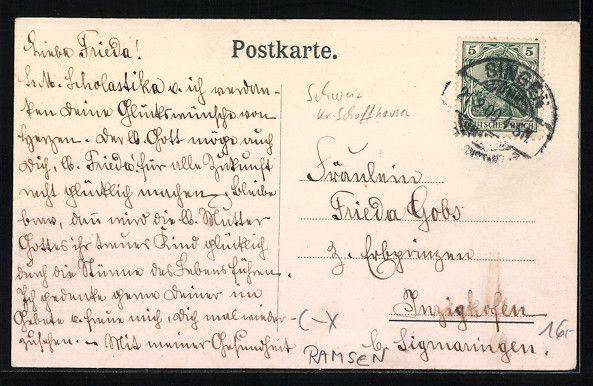 Postkarte.
Liebe Frieda!
Schw. Scholastika u. ich verdan-
ken deine Glückswünsche von
Herzen. Der lb. Gott möge auch
Dich, lb. Frieda für alle Zukunft
recht glücklich machen. Bleibe
brav, dann wird die lb. Mutter
Gottes ihr treues Kind glücklich
durch die Stürme des Lebens führen.
Ich gedenke gerne Deiner im
Gebete u. freue mich, Dich mal wieder
zusehen. – Mit meiner Gesundheit
5 5
SINGEN
DEUTSCHES REICH
Schweiz
Kr. Schaffhausen
Fräulein
Frieda Gobs
z. Erbprinzen
Inzigkofen
b. Sigmaringen.
(–X
RAMSEN
16,-